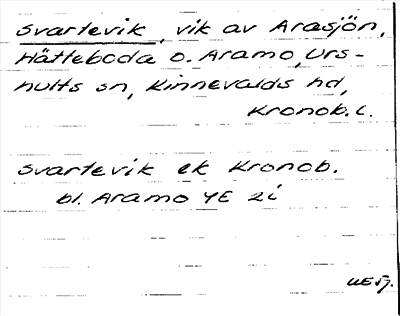 Svartevik, vik av Arasjön,
Hätteboda o. Aramo, Urs-
hults sn, Kinnevalds hd,
Kronob. l.
Svartevik ek Kronob.
bl. Aramo 4E 2i